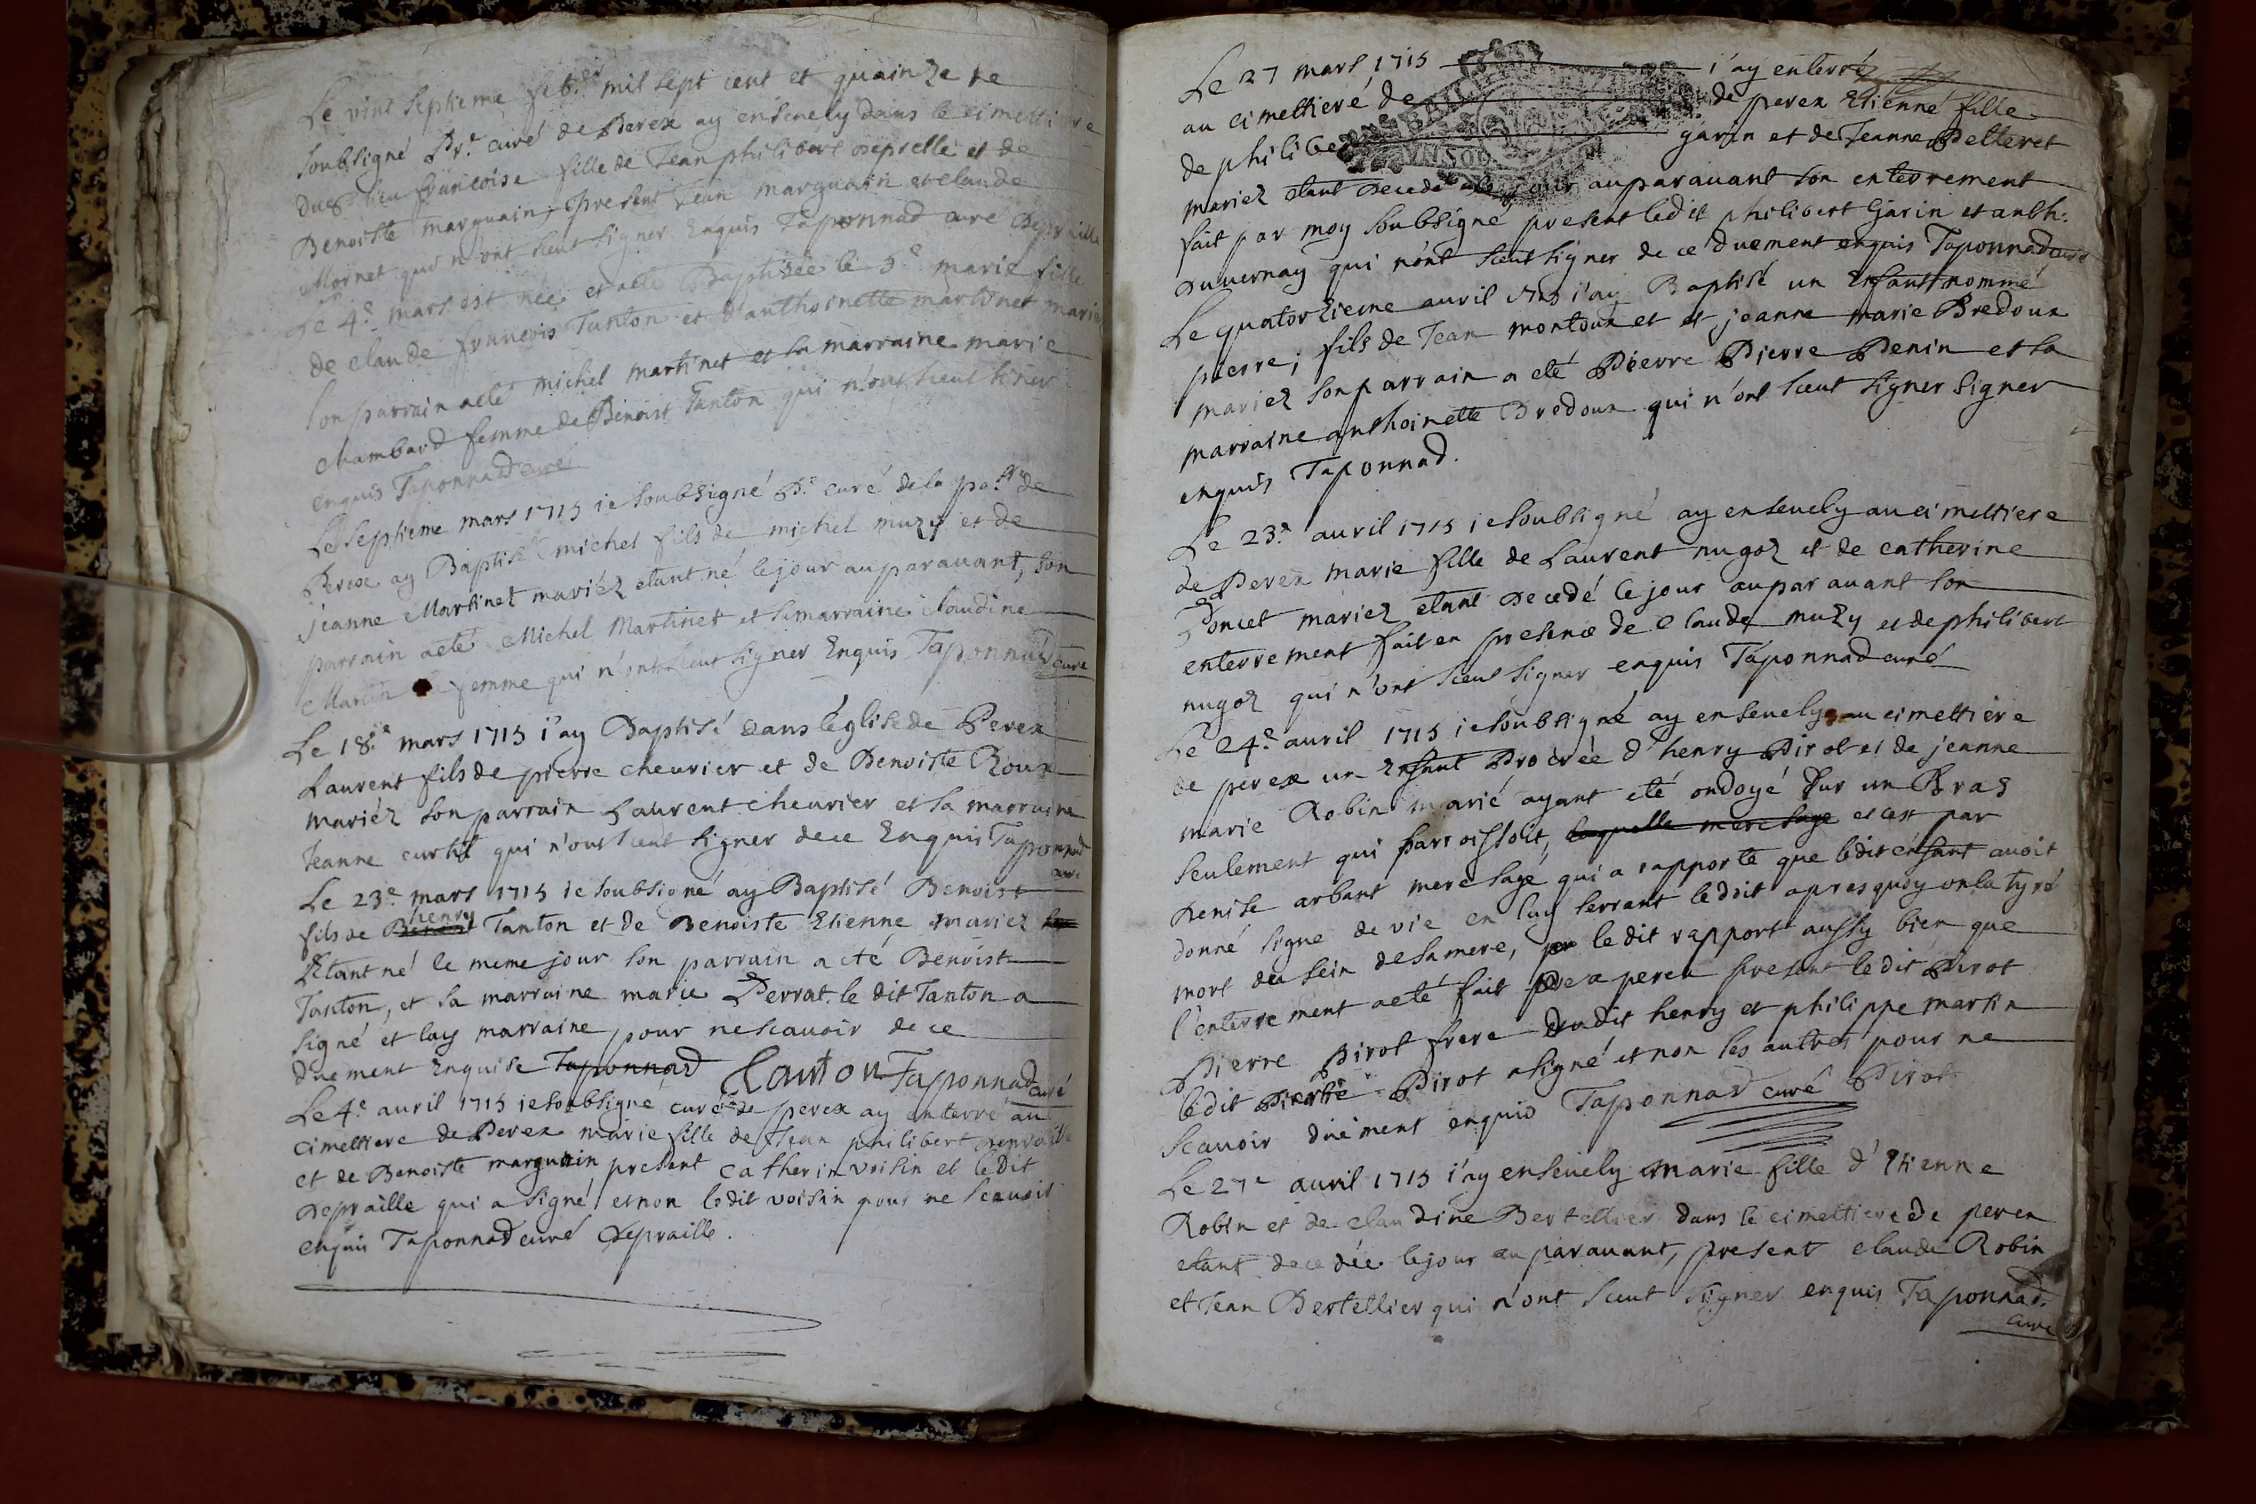 Le vint septieme feb.er mil sept cent et quainze ie
soubsigné P.r curé de Perex ay ensevely dans le cimettiere
dud lieu francoise fille de Jean philibert depralle et de
Benoiste marguain, present Jean marguain et claude
Mornet qui n'ont sceut signer Enquis Taponnad curé Depraille
Le 4.e mars est née et a été Baptisée le 5.e marie fille
de claude francois Tanton et d'anthoinette martinet mariez
son parrain a eté michel martinet et sa marraine marie
chambard femme de Benoist Tanton qui n'ont sceut siner
enquis Taponnad curé
Le septieme mars 1715 ie soubsigné P.r curé de la pa.sse de
Perex ay Baptisé michel fils de michel muzy et de
jeanne Martinet mariéz etant né le jour auparavant, son
parrain a eté Michel Martinet et sa marraine claudine
Martin femme qui n'ont sceut signer Enquis Taponnad curé
Le 18.e mars 1715 i'ay Baptisé dans léglise de Perex
Laurent fils de pierre cheurier et de Benoiste Roux
mariéz son parrain Laurent cheurier et sa marraine
Jeanne curtil qui n'ont sceut signer de ce Enquis Taponnad
curé
Le 23.e mars 1715 ie soubsigné ay Baptisé Benoist
henry
fils de Benoist Tanton et de Benoiste Etienne mariez
Etant né le meme jour son parrain a eté Benoist
Tanton, et sa marraine marie Perrat. le dit Tanton a
signé et lay marraine pour ne scavoir de ce
duement Enquise Taponnad Tanton Taponnad curé
Le 4.e avril 1715 ie soubsigné curé de perex ay enterré au
cimettiere de Perex marie fille de Jean philibert depraille
et de Benoiste marguain present catherin voisin et ledit
depraille qui a signé et non ledit voisin pour ne scavoir
enquis Taponnad curé Depraille.
Le 27 mars 1715 i'ay enterré
au cimettieré de de perex Etienné fille
de philibe garin et de Jeanne Pelleret
mariez etant decedé le jour auparavant son enterrement
fait par moy soubsigné present ledit philibert Garin et anth:
duvernay qui n'ont sceut signer de ce duement enquis Taponnad curé
Le quatorzieme avril 1715 i'ay Baptisé un Enfant nommé
pierre, fils de Jean montoux et et jeanne marie Bredoux
mariez son parrain a eté Pierre Pierre Penin et sa
marraine anthoinette Bredoux qui n'ont sceut signer signer
enquis Taponnad.
Le 23.e avril 1715 ie soubsigné ay ensevely au cimettiere
de Perex marie fille de Laurent nugoz et de catherine
Poncet mariez etant decedé le jour auparavant son
enterrement fait en presence de claude muzy et de philibert
nugoz qui n'ont sceut signer enquis Taponnad curé
Le 24.e avril 1715 ie soubsigné ay ensevely au cimettiere
de perex un Enfant Procréé d'henry Pirot et de jeanne
marie Robin marié ayant eté ondoyé sur un Bras
seulement qui parroissoit, laquelle mere sage et cest par
denise arbant mere sage qui a rapporte que ledit enfant avoit
donné signe de vie en luy serrant le doit apres quoy on la tyré
mort du sein de sa mere, ledit rapport aussy bien que
l'enterrement a eté fait a perex present ledit Pirot
Pierre Pirot frere dudit henry et philippe martin
ledit Pierre Pirot a signé et non les autres pour ne
scavoir duement enquis Taponnad curé Pirot
Le 27.e avril 1715 i'ay ensevely marie fille d'Etienne
Robin et de claudine Bertellier dans le cimettiere de perex
etant decedée le jour auparavant, present claude Robin
et Jean Bertellier qui n'ont sceut signer enquis Taponnad.
curé